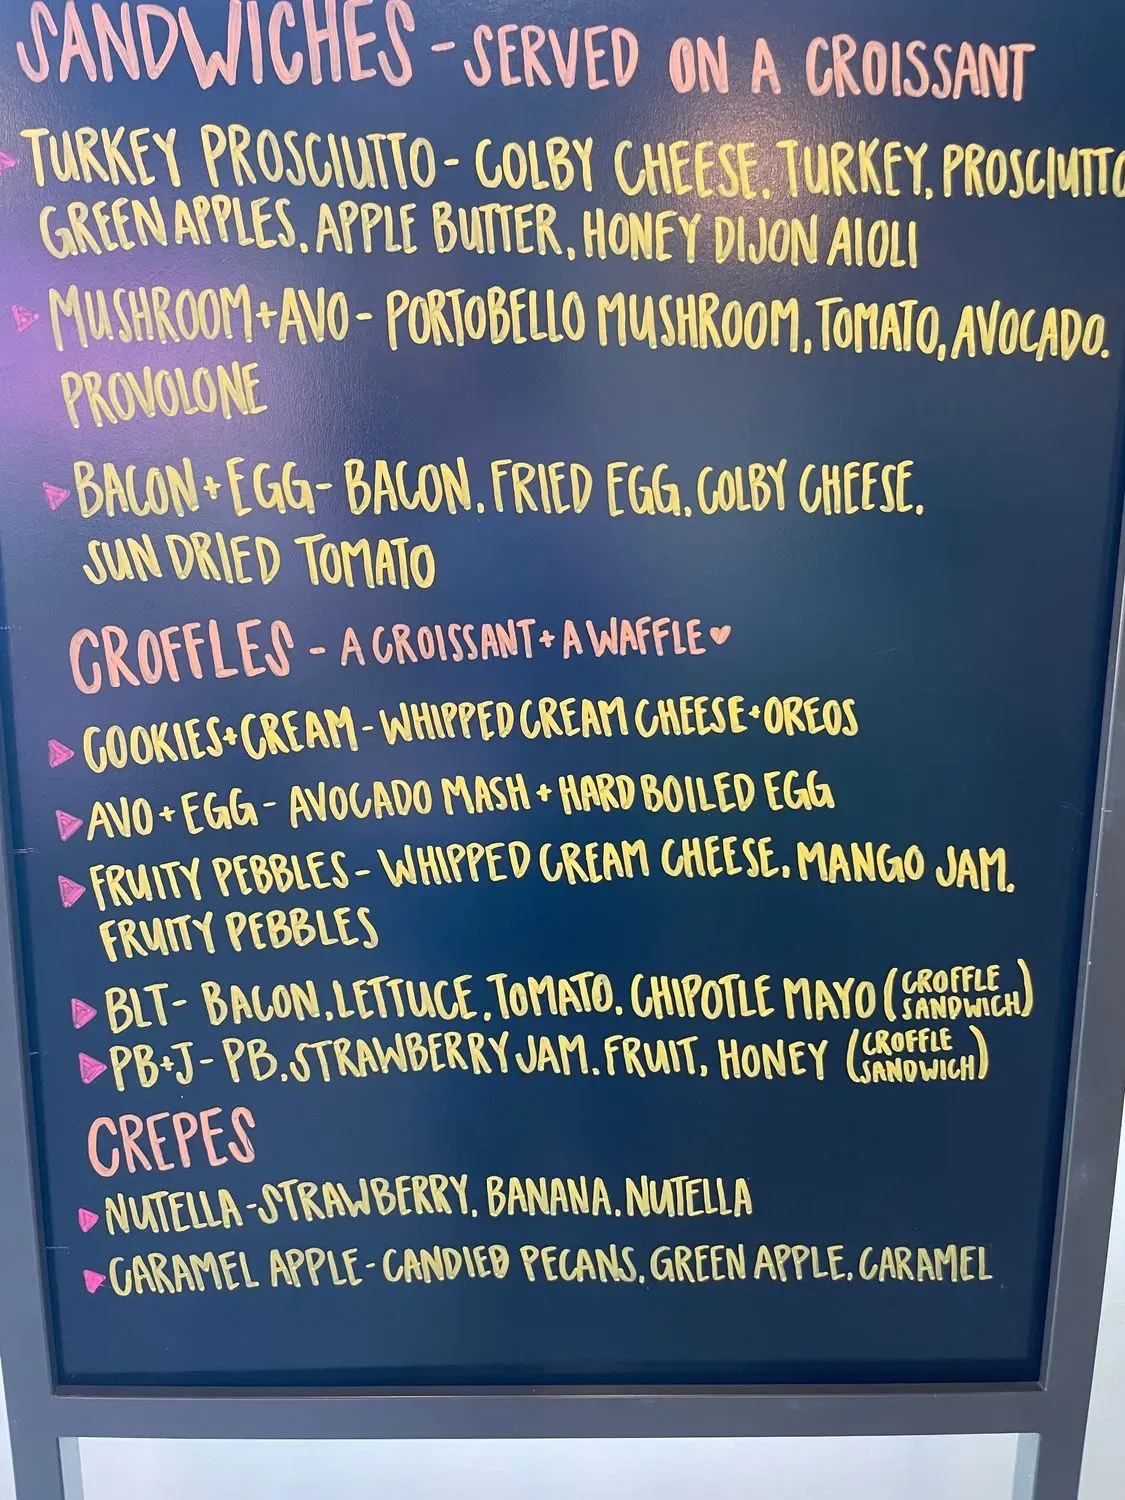 SANDWICHES - SERVED ON A CROISSANT
TURKEY PROSCIUTTO - COLBY CHEESE, TURKEY, PROSCIUTTO
GREEN APPLES, APPLE BUTTER, HONEY DIJON AIOLI
MUSHROOM + AVO - PORTOBELLO MUSHROOM, TOMATO, AVOCADO,
PROVOLONE
BACON + EGG - BACON, FRIED EGG, COLBY CHEESE,
SUN DRIED TOMATO
CROFFLES - A CROISSANT + A WAFFLE ♥
COOKIES + CREAM - WHIPPED CREAM CHEESE + OREOS
AVO + EGG - AVOCADO MASH + HARD BOILED EGG
FRUITY PEBBLES - WHIPPED CREAM CHEESE, MANGO JAM,
FRUITY PEBBLES
BLT - BACON, LETTUCE, TOMATO, CHIPOTLE MAYO (CROFFLE SANDWICH)
PB+J - PB, STRAWBERRY JAM, FRUIT, HONEY (CROFFLE SANDWICH)
CREPES
NUTELLA - STRAWBERRY, BANANA, NUTELLA
CARAMEL APPLE - CANDIED PECANS, GREEN APPLE, CARAMEL